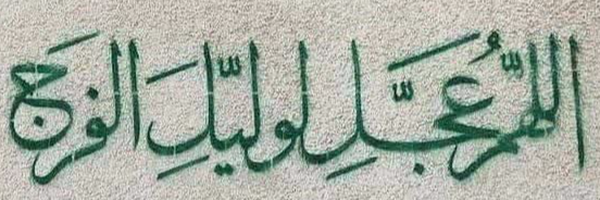 اللهمَّ عُجَّلِ لولیَّلِ الفرج